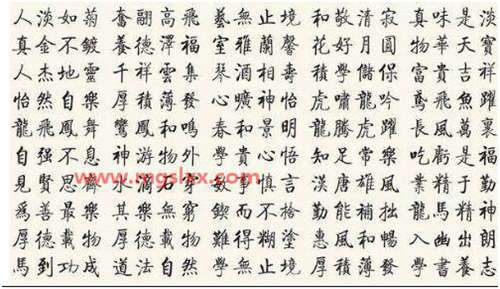 人淡如菊 奮翮高飛 藝無止境 和敬清寂 真味是淡
真金不鍍 養德澤福 室雅蘭馨 花好月圓 物華天寶
人杰地靈 千祥雲集 琴酒相壽 學儲 富貴吉祥
怡然自樂 厚積薄發 心曠神怡 虎嘯龍吟 鳶飛魚躍
龍飛鳳舞 鸞鳳和鳴 春和景明 龍騰虎躍 長風萬裏
自强不息 神游物外 學貴心悟 知足常樂 吃虧是福
www.mgslxx.com
見賢思齊 水滴石穿 事慎言 漢唐雄風 業精于勤
爲善最樂 其樂無窮 鍥而不捨 勤能補拙 龍馬精神
厚德載物 難得糊塗 惠風和暢 入幽出朗
馬到功成 道法自然 學無止境 厚積薄發 學書養志